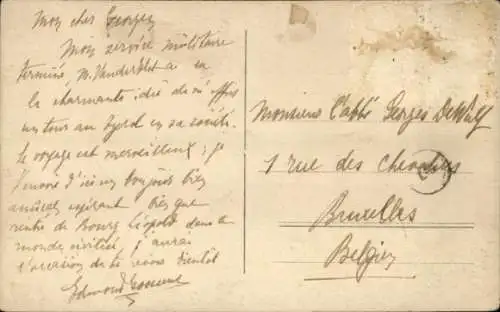 Mon cher Georges
Mon service militaire
terminé, M. Vanderblot a eu
la charmante idée de m'offrir
un tour au Tyrol en sa société.
Le voyage est merveilleux; je
t'envoie d'ici un bonjour bien
amical, espérant dès que
rentré de Bourg Léopold dans le
monde civilisé, j'aurai
l'occasion de te revoir bientôt
Edmond
Monsieur l'abbé Georges DeWulf
1 rue des
Bruxelles
Belgien